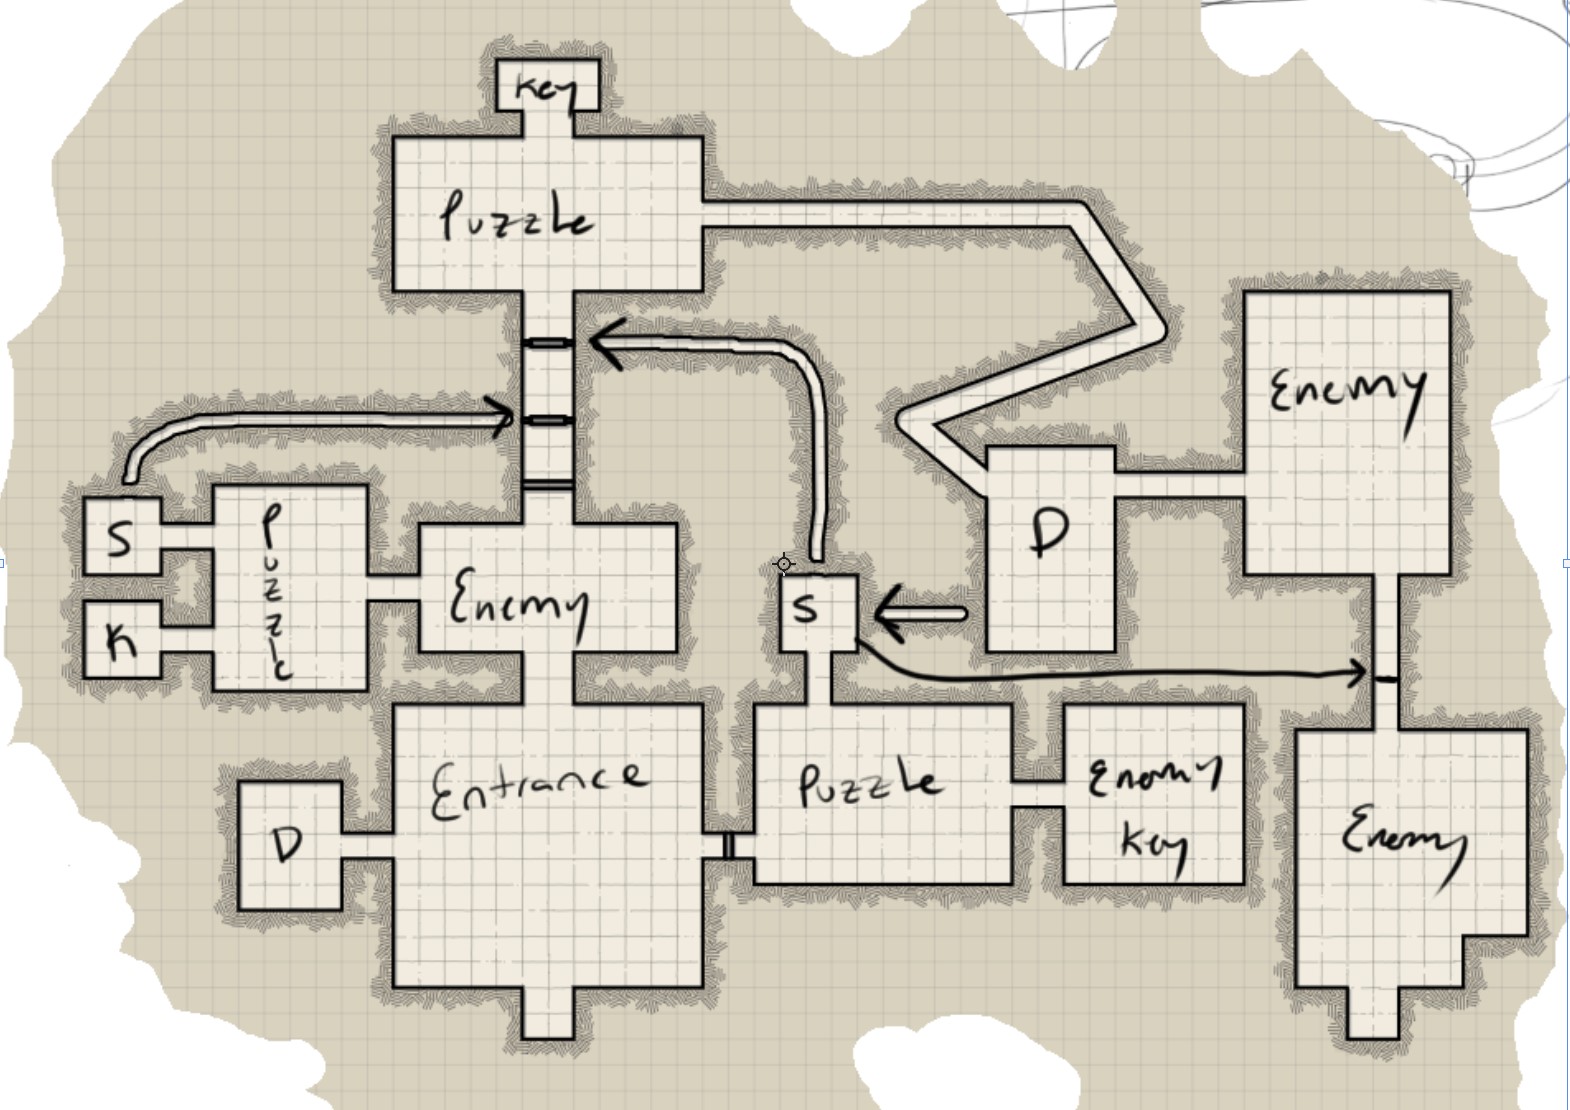 Key
Puzzle
Enemy
S
Puzzle
D
K
Enemy
S
Entrance
Puzzle
Enemy
Key
Enemy
D